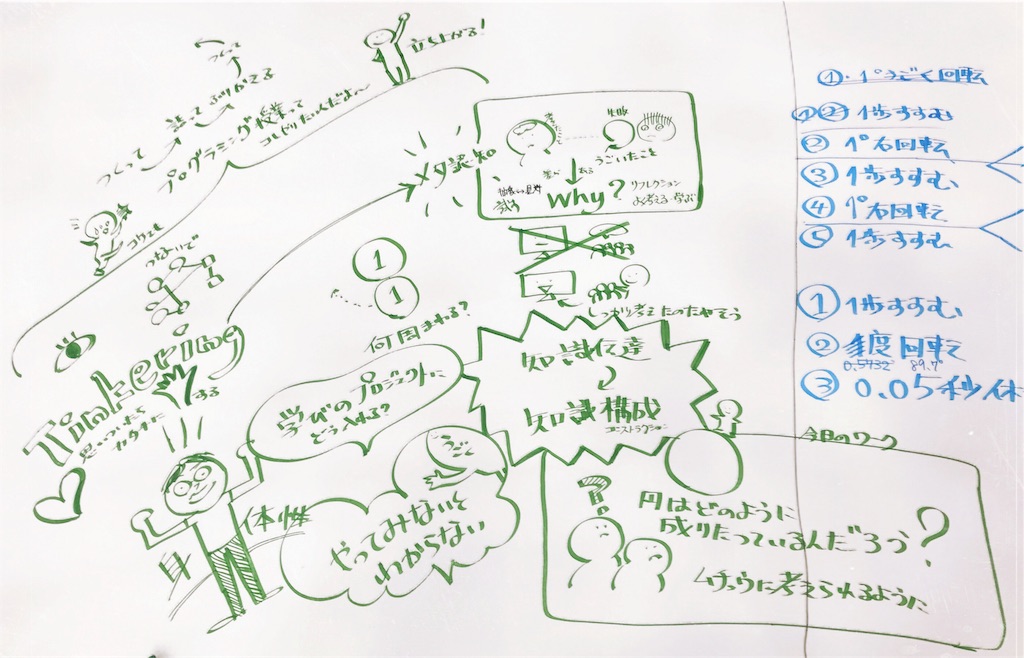 つくって
語って
ふりかえる
つくって
立ち上がる!
プログラミング授業って
コレどりたいんだよ〜
つないで
Tinkering
思いついたら
カタチに
する
メタ認知
失敗
うごいたこと
ある
why?
リフレクション
よく考える・学ぶ
①
①
何周まわる?
しっかり考えたのたやそう
学びのプロジェクトに
どう入れる?
知識伝達
知識構成
コンストラクション
身体性
うごく
やってみないと
わからない
今日のワーク
円はどのように
成りたっているんだろう?
ムチュウに考えられるように
①・1°うごく回転
①② 1歩すすむ
② 1°右回転
③ 1歩すすむ
④ 1°右回転
⑤ 1歩すすむ
① 1歩すすむ
② 角度 回転
0.5432° 89.7°
③ 0.05秒休